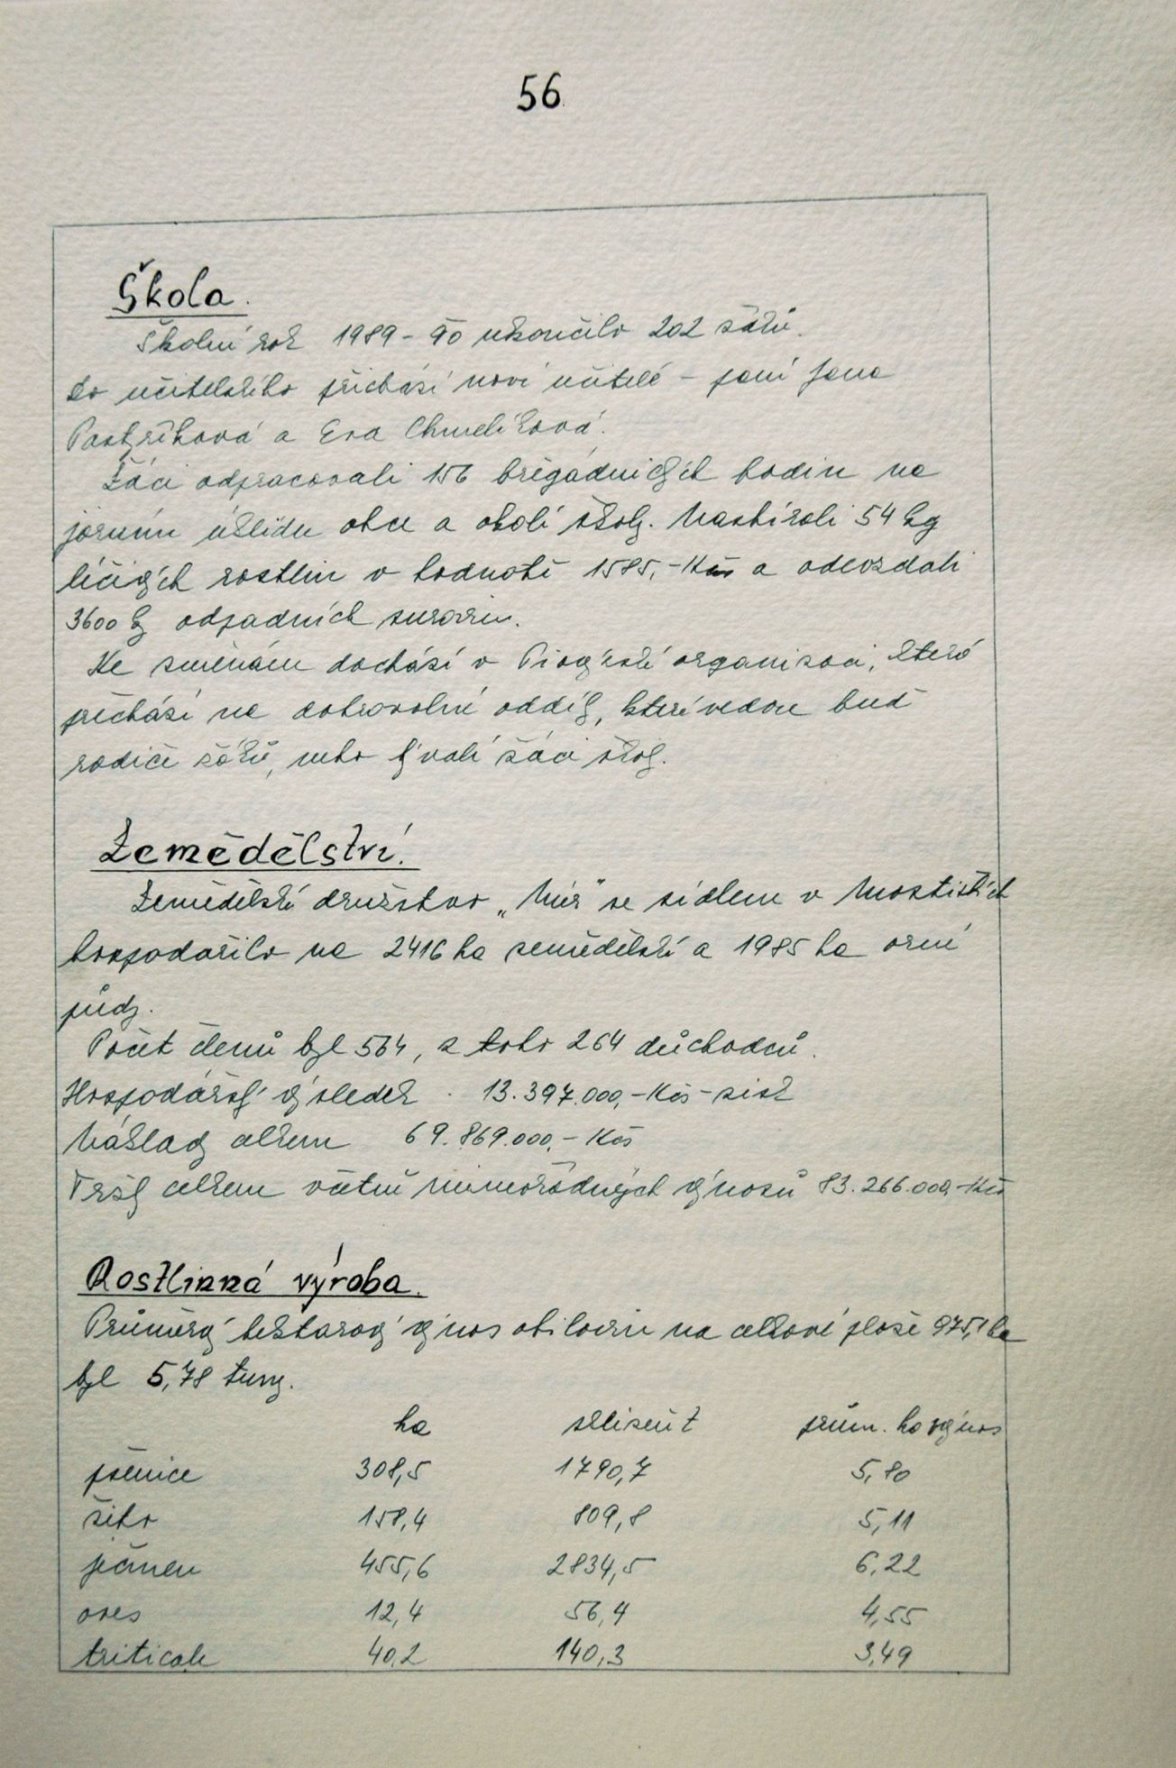 56
Škola.
Školní rok 1989-90 ukončilo 202 žáků.
Do učitelského přichází noví učitelé - paní Jana
a Eva Chmelíková.
Žáci odpracovali 156 brigádnických hodin na
jarním úklidu obce a okolí školy. Nasbírali 54 kg
léčivých rostlin v hodnotě 1585,-Kčs a odevzdali
3600 kg odpadních surovin.
Ke změnám dochází v Pionýrské organizaci, která
přechází na dobrovolné oddíly, které vedou buď
rodiče žáků, nebo bývalí žáci školy.
Zemědělství.
Zemědělské družstvo „Mír" se sídlem v Mostištích
hospodařilo na 2416 ha zemědělské a 1985 ha orné
půdy.
Počet členů byl 564, z toho 264 důchodců.
Hospodářský výsledek 13.397.000,-Kčs-zisk
Náklady celkem 69.869.000,- Kčs
Tržby celkem včetně mimořádných výnosů 83.266.000,-Kčs
Rostlinná výroba.
Průměrný hektarový výnos obilovin na celkové ploše 975,1 ha
byl 5,78 tuny.
ha sklizeň t prům. ha výnos
pšenice 308,5 1790,7 5,80
žito 158,4 809,8 5,11
ječmen 455,6 2834,5 6,22
oves 12,4 56,4 4,55
triticale 40,2 140,3 3,49